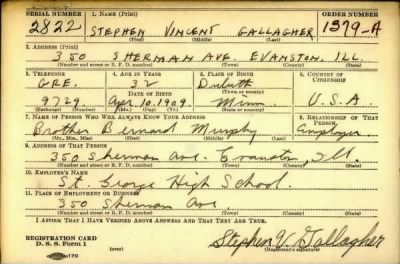 SERIAL NUMBER 1. NAME (Print) ORDER NUMBER
2822 STEPHEN VINCENT GALLAGHER 1379-A
(First) (Middle) (Last)
2. ADDRESS (Print)
350 SHERMAN AVE. EVANSTON, ILL.
(Number and street or R. F. D. number) (Town) (County) (State)
3. TELEPHONE 4. AGE IN YEARS 5. PLACE OF BIRTH 6. COUNTRY OF CITIZENSHIP
GRE. 32 Duluth
DATE OF BIRTH (Town or county)
9729 Apr. 10. 1909 Minn U.S.A.
(Exchange) (Number) (Mo.) (Day) (Yr.) (State or country)
7. NAME OF PERSON WHO WILL ALWAYS KNOW YOUR ADDRESS 8. RELATIONSHIP OF THAT PERSON
Brother Bernard Murphy Employer
(Mr., Mrs., Miss) (First) (Middle) (Last)
9. ADDRESS OF THAT PERSON
350 Sherman Ave. Evanston, Ill.
(Number and street or R. F. D. number) (Town) (County) (State)
10. EMPLOYER'S NAME
St. George High School.
11. PLACE OF EMPLOYMENT OR BUSINESS
350 Sherman Ave
(Number and street or R. F. D. number) (Town) (County) (State)
I AFFIRM THAT I HAVE VERIFIED ABOVE ANSWERS AND THAT THEY ARE TRUE.
REGISTRATION CARD
D. S. S. Form 1 Stephen V. Gallagher
(Registrant's signature)